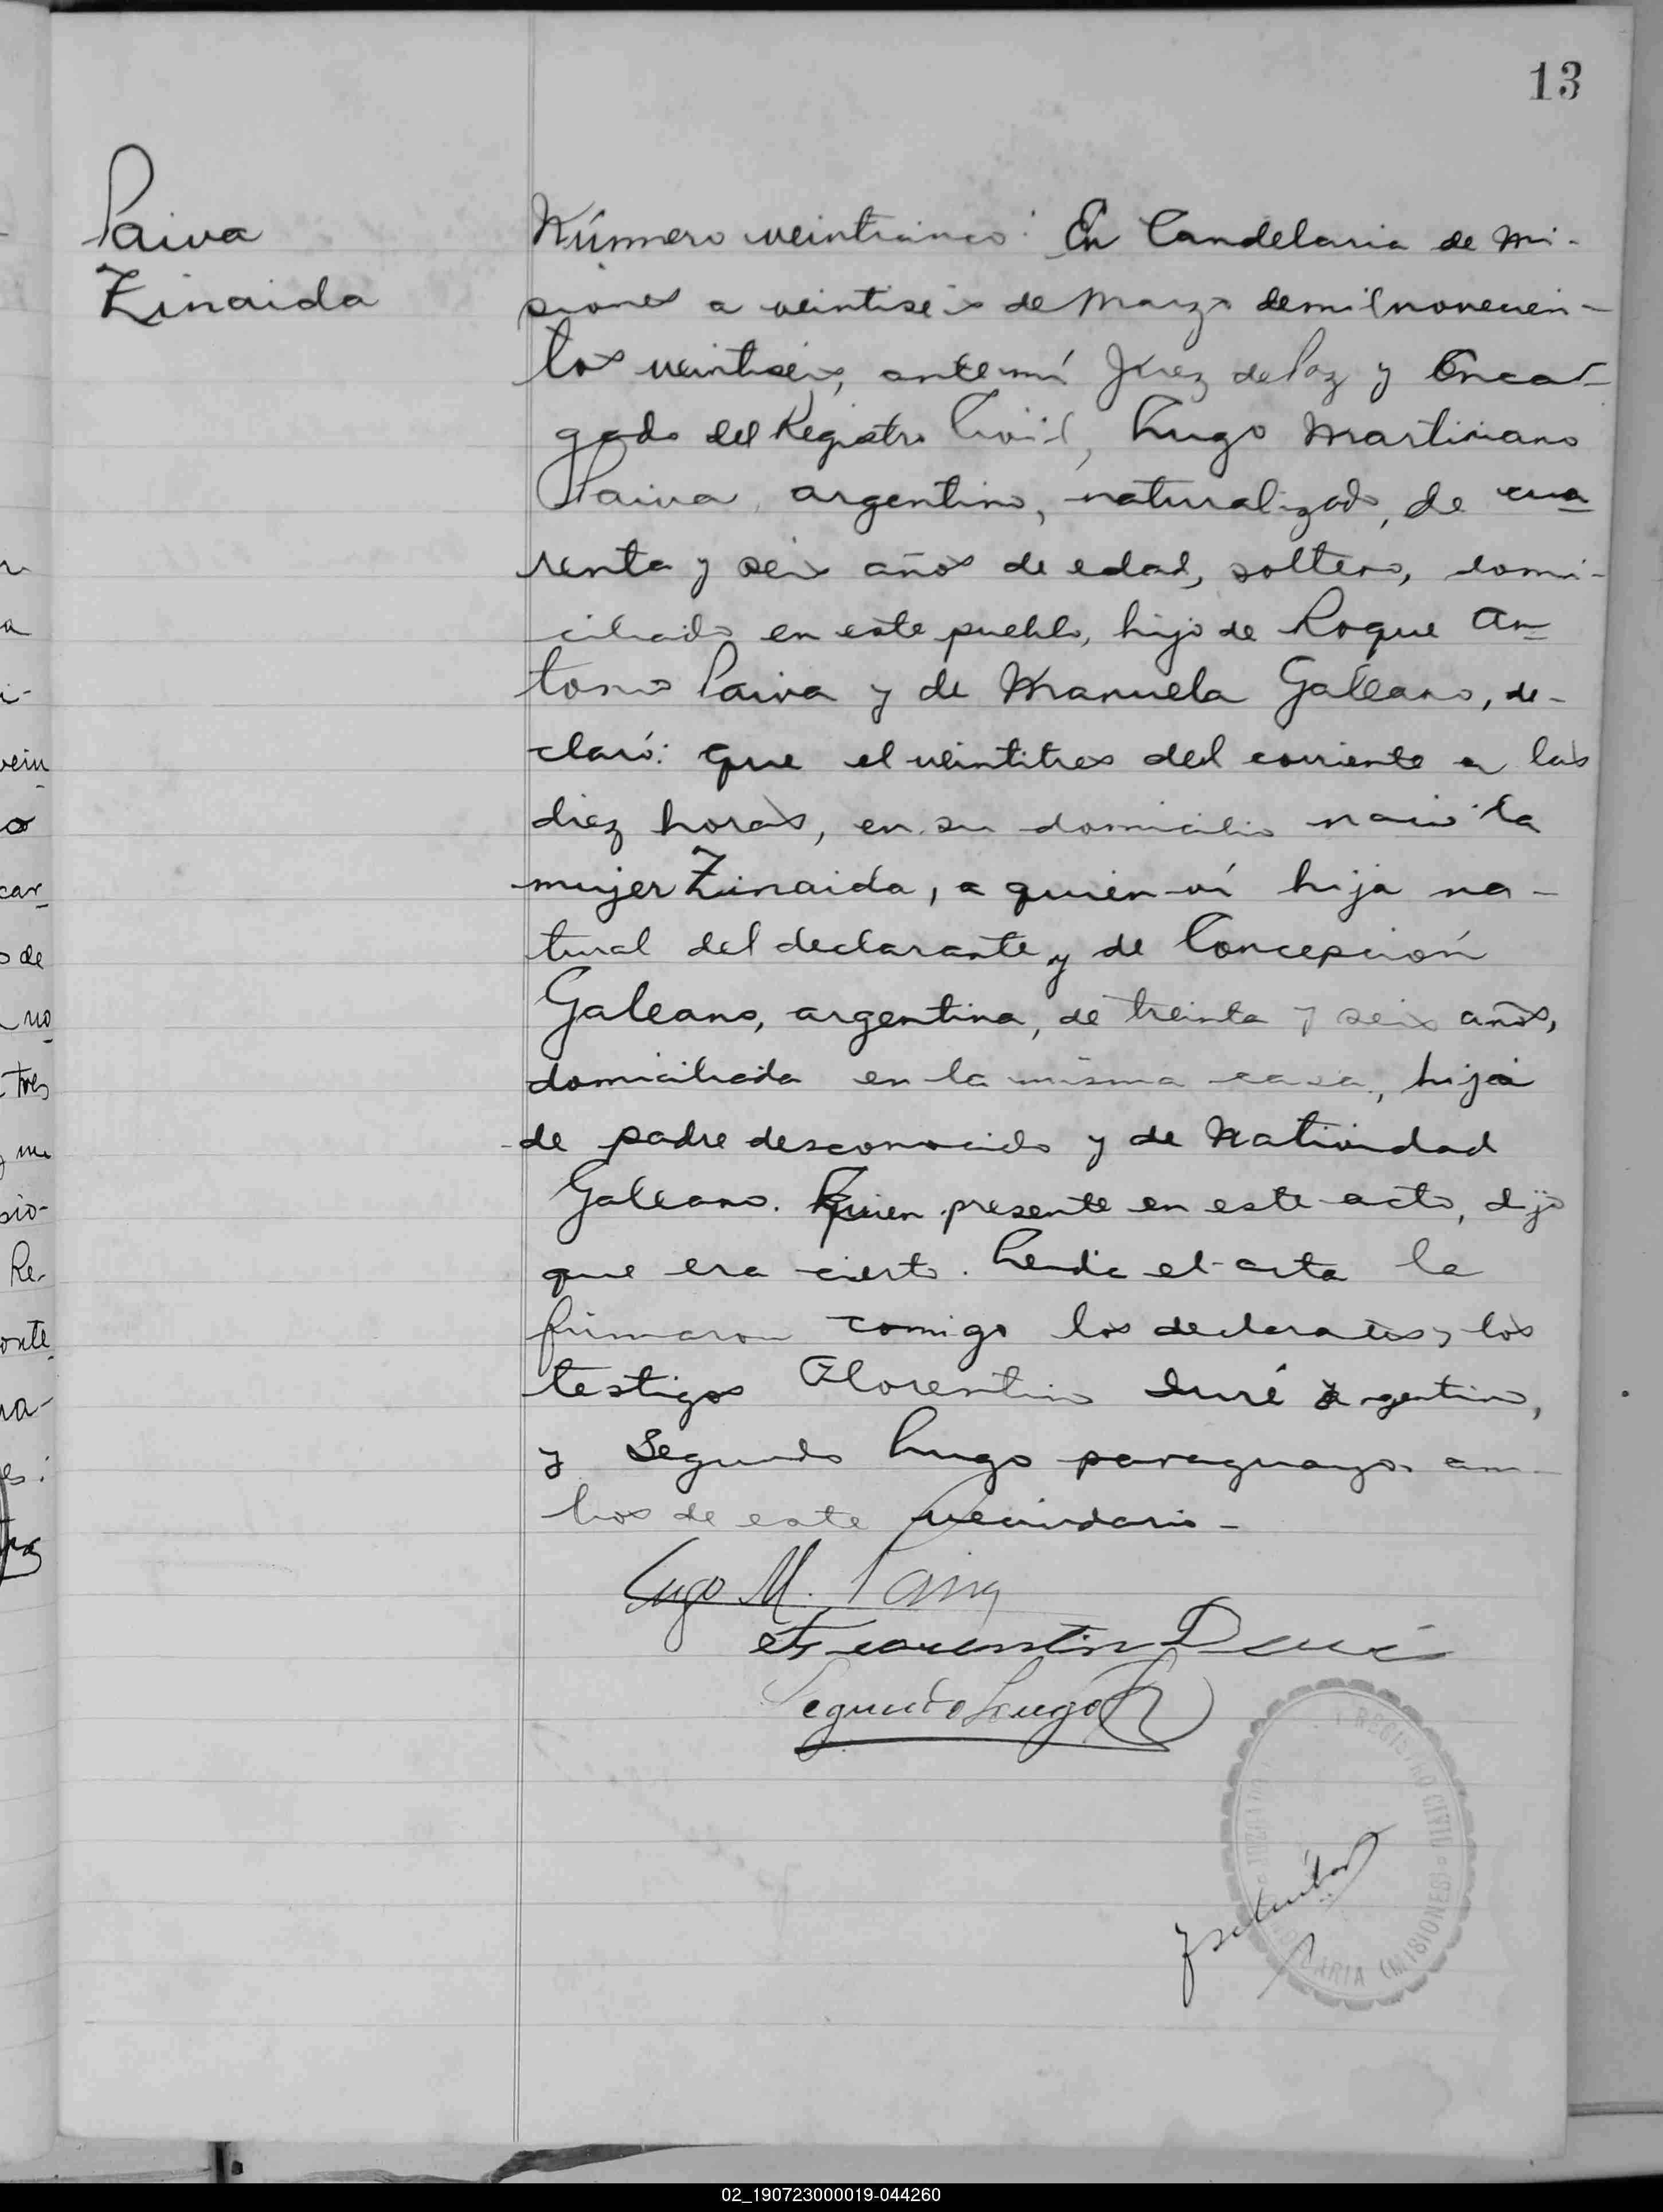 13
Paiva
Zinaida
Número veinticinco: En Candelaria de Mi-
siones a veintiseis de Marzo de mil novecien-
tos veintiseis, ante mí Juez de Paz y Encar-
gado del Registro Civil, Lugo Martiniano
Paiva, argentino, naturalizado, de cua
renta y seis años de edad, soltero, domi-
ciliado en este pueblo, hijo de Roque An
tonio Paiva y de Manuela Galeano, de-
claró: que el veintitres del corriente a las
diez horas, en su domicilio nació la
mujer Zinaida, a quien ví hija na-
tural del declarante y de Concepción
Galeano, argentina, de treinta y seis años,
domiciliada en la misma casa, hija
de padre desconocido y de Natividad
Galeano. Quien presente en este acto, dijo
que era cierto. Leida el acta la
firmaron comigo los declarates y los
testigos Florentin Duré argentino,
y Segundo Lugo paraguayo am-
bos de este vecindario-
Lugo M. Paiva
Florentin Duré
Segundo Lugo
REGISTRO CIVIL
(MISIONES)
vein
car
o de
no
tres
sio-
Re-
onte
na-
02_190723000019-044260